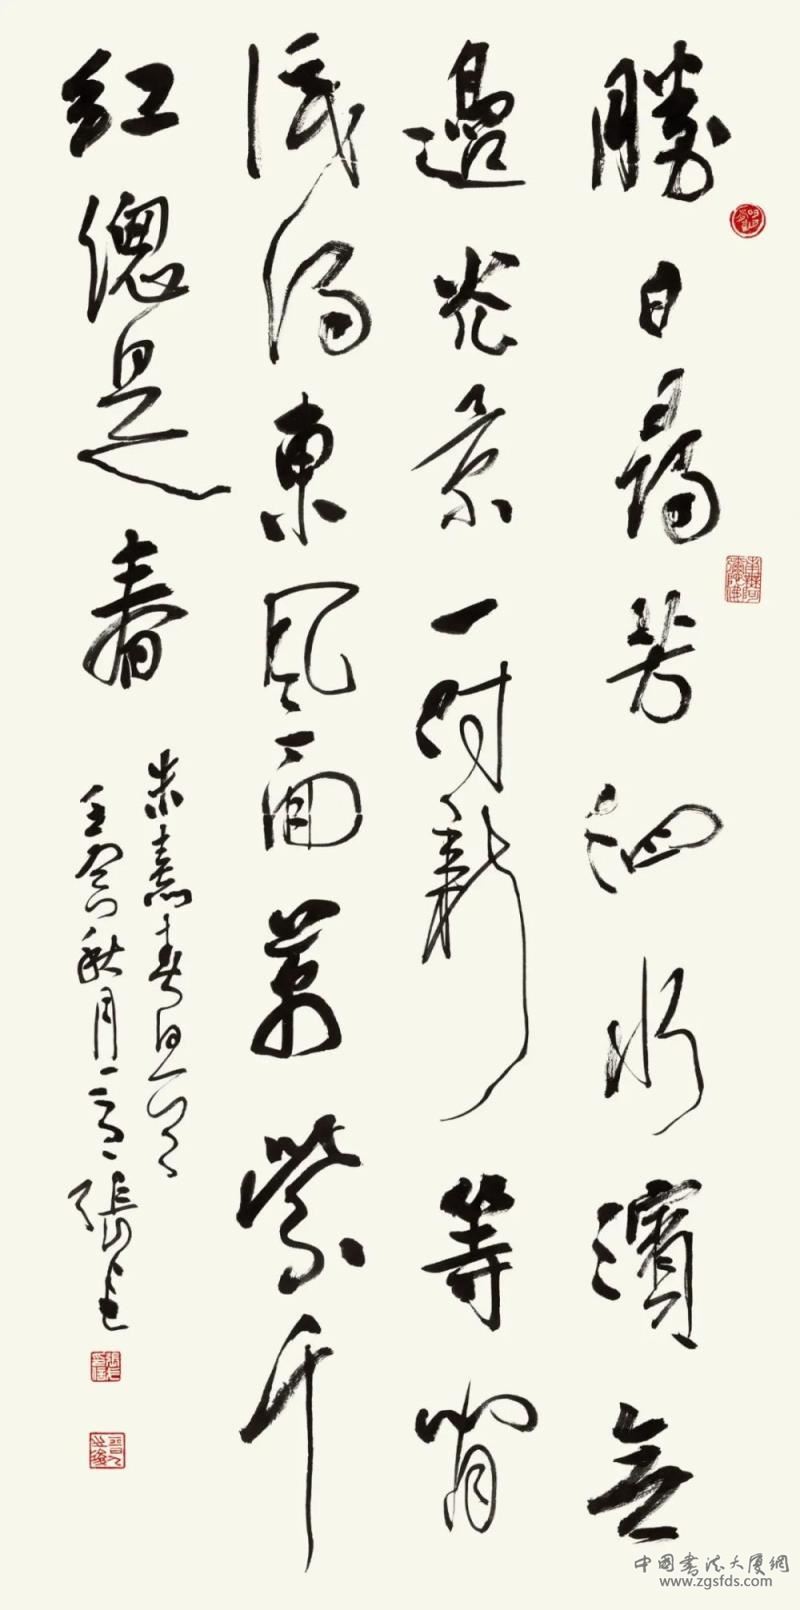 勝日尋芳泗水濱無
邊光景一時新等閒
識得東風面萬紫千
紅總是春
朱熹春日一首
壬寅秋月 張
中國書法大厦網
www.zgsfds.com